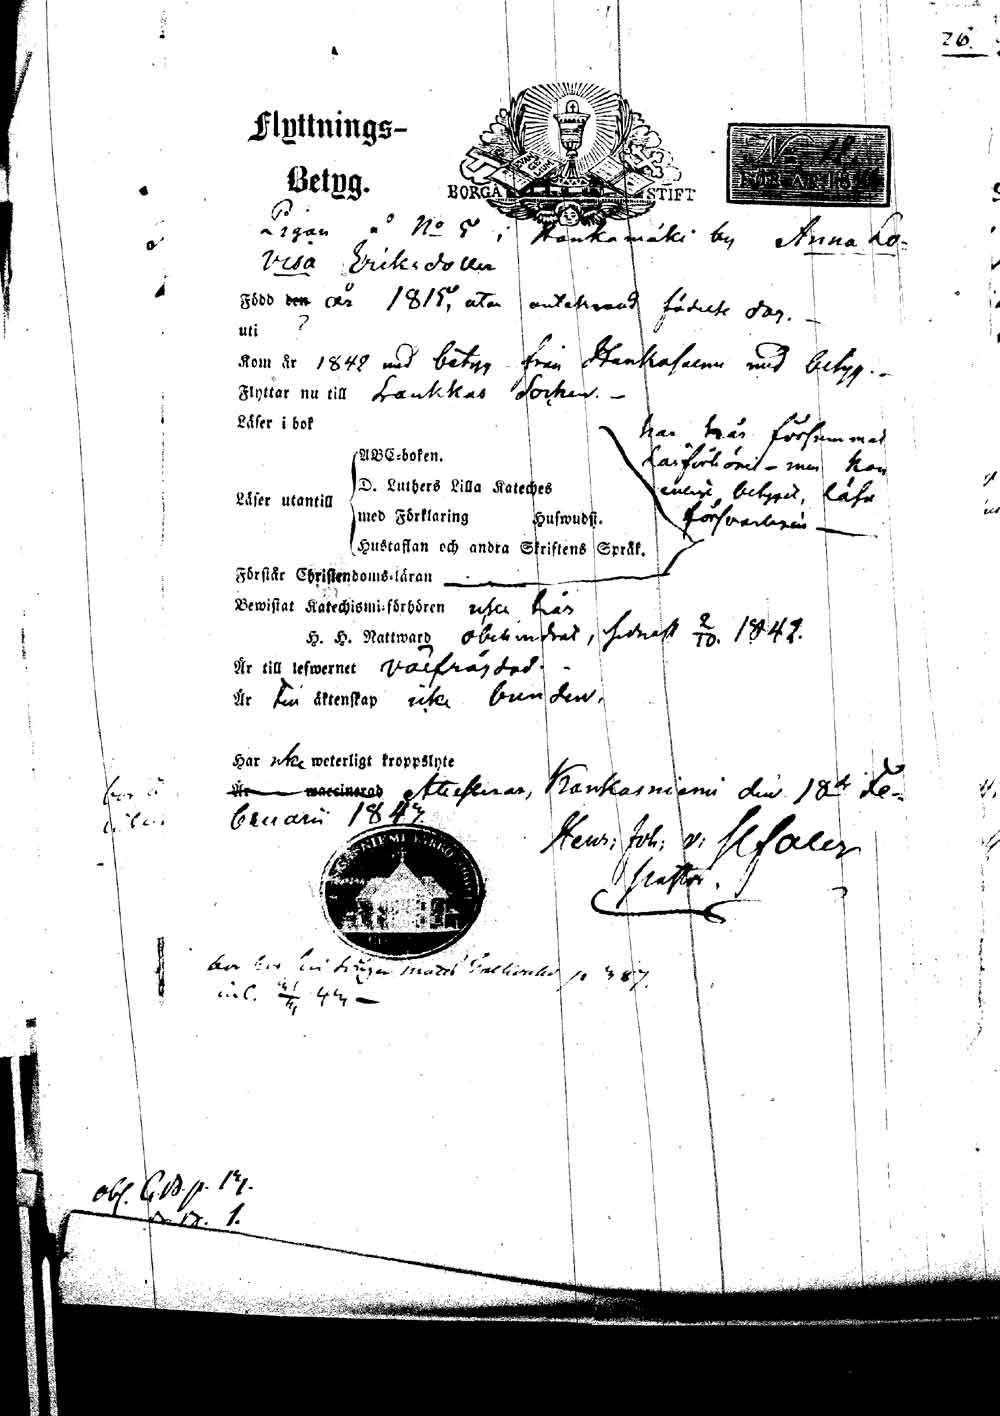 26.
Flyttnings-
Betyg.
BORGÅ STIFT
No 18
FÖR ÅR 18
Pigan å No 5 i Hankamäki by Anna Lo-
visa Eriksdotter
Född den år 1815, utan antecknad födelse dag. –
uti ?
Kom år 1842 med betyg från Hankasalmi med betyg. –
Flyttar nu till Laukkas Socken. –
Läser i bok
har här försummat
Läsförhöret – men kan
enligt betyget, läsa
försvarligen –
ABC-boken.
D. Luthers Lilla Kateches
Läser utantill
med Förklaring Hufwudst.
Hustaflan och andra Skriftens Språk.
Förstår Christendoms-läran
Bewistat Katechismi-förhören icke här
H. H. Nattward obehindrat, sednast 2/10. 1842.
Är till lefwernet välfräjdad. –
Är till äktenskap icke bunden.
Har icke weterligt kroppslyte
Är waccinerad Attesterar, Kankasniemi den 18de Fe-
bruarii 1843
Henr: Joh: v:
Pastor.
NIEMI KIRKO
p 387.
obs. C.B. p. 131.
1.